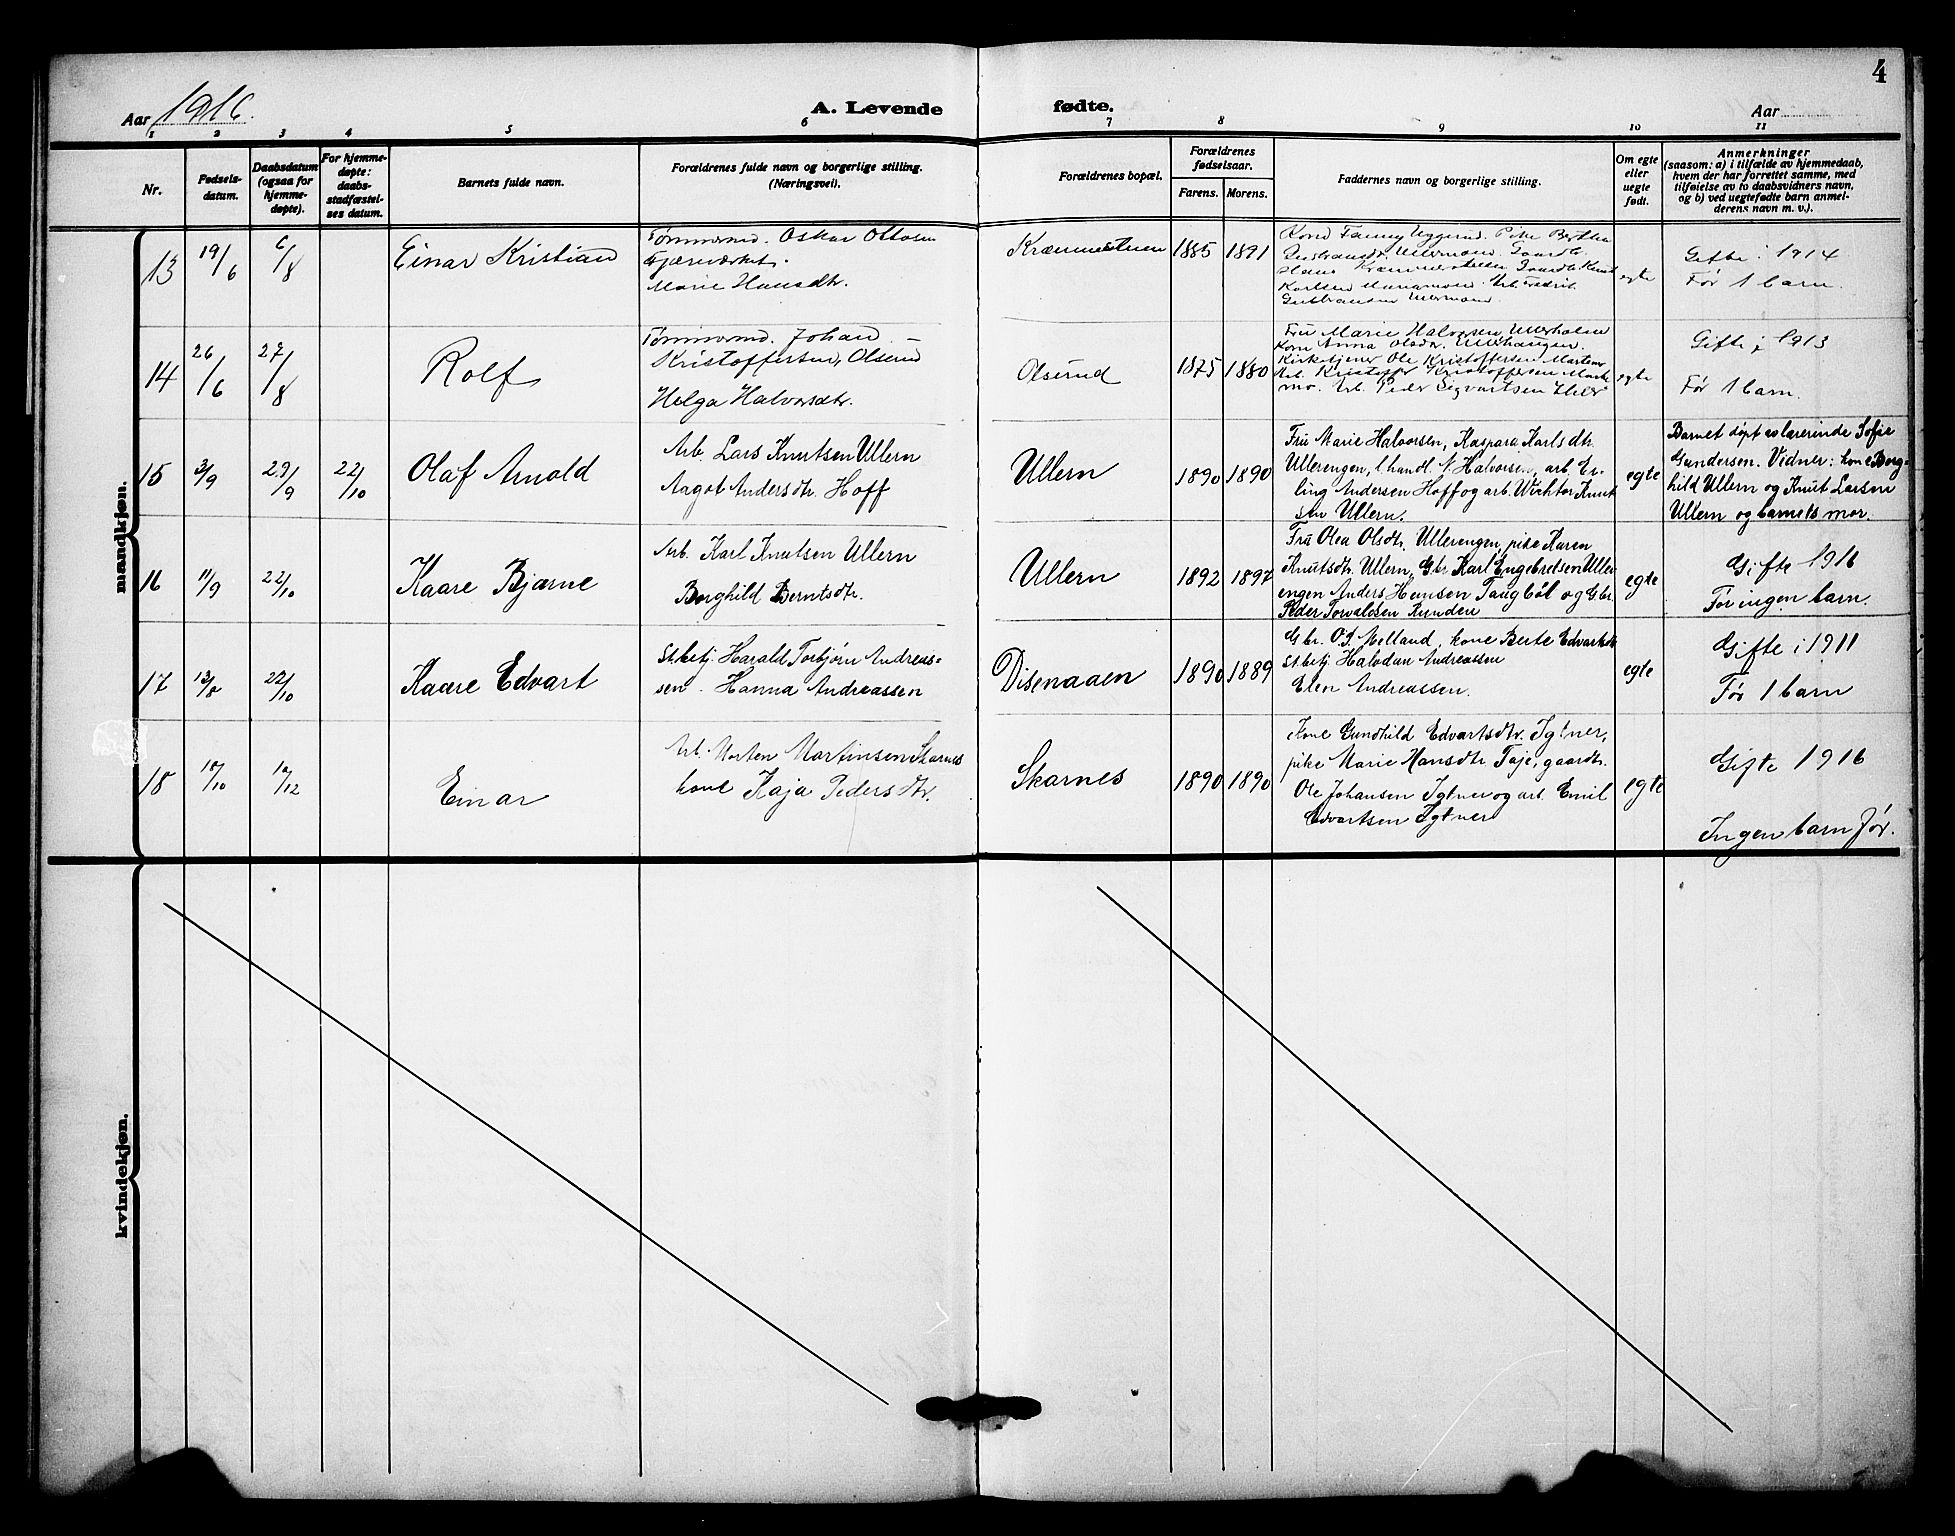 4
Aar 1916.
A. Levende fødte.
Aar
1 2 3 4 5 6 7 8 9 10 11
Nr.
Fødsels-
datum.
Daabsdatum
(ogsaa for
hjemme-
døpte).
For hjemme-
døpte:
daabs-
stadfæstel-
ses datum.
Barnets fulde navn.
Forældrenes fulde navn og borgerlige stilling.
(Næringsvei).
Forældrenes bopæl.
Forældrenes
fødselsaar.
Farens. Morens.
Faddernes navn og borgerlige stilling.
Om egte
eller
uegte
født.
Anmerkninger
(saasom: a) i tilfælde av hjemmedaab,
hvem der har forrettet samme, med
tilføielse av to daabsvidners navn,
og b) ved uegtefødte barn anmel-
derens navn m. v.).
mandkjøn.
13
19/6
6/8
Einar Kristian
Tømmermd. Oskar Ottosen
Marie Hansdtr.
1885 1891
Kone Fanny Uggerud. Pike Bertha
egte
Gifte i 1914
Før 1 barn.
14
26/6
27/8
Rolf
Tømmermd. Johan
Kristoffersen, Olserud
Helga Halvorsdtr.
Olserud
1875 1880
Fru Marie Halvorsen, Ullerholen
Kone Anna Olsdtr. Ullerhaugen.
Kirketjener Ole Kristoffersen
Arb. Kristoffer Kristoffersen
mo. Arb. Peder Sigvartsen
egte
Gifte i 1913
Før 1 barn.
15
3/9
29/9
22/10
Olaf Arnold
Arb. Lars Knutsen Ullern
Aagot Andersdtr. Hoff
Ullern
1890 1890
Fru Marie Halvorsen, Kaspara Karlsdtr.
Ullerengen, l. handl. N. Halvorsen, arb. Er-
ling Andersen Hoff og arb. Wichtor Knut
sen Ullern.
egte
Barnet døpt av lærerinde Sofie
Gundersen. Vidner: kone Borg-
hild Ullern og Knut Larsen
Ullern og barnets mor.
16
11/9
22/10
Kaare Bjarne
Arb. Karl Knutsen Ullern
Borghild Berntsdtr.
Ullern
1892 1897
Fru Olea Olsdtr. Ullerengen, pike Karen
Knutsdtr. Ullern, Gbr. Karl Engebretsen Uller
engen Anders Hansen Taugbøl og Gbr.
Peder Torvaldsen Kunden
egte
Gifte 1916
Før ingen barn.
17
13/8
22/10
Kaare Edvart
St.betj. Harald Torbjørn Andreas-
sen. Hanna Andreassen
Disenaaen
1890 1889
Gbr. O. J. Melland, kone Berte Edvartsdtr
St.betj. Halvdan Andreassen
Elen Andreassen.
egte
Gifte i 1911
Før 1 barn
18
10/10
10/12
Einar
Arb. Morten Martinsen Skarnes
kone Kaja Pedersdtr.
Skarnes
1890 1890
Kone Gundhild Edvartsdtr. Igtner,
pike Marie Hansdtr. Taje, gaardbr.
Ole Johansen Igtner og arb. Emil
Edvartsen Igtner
egte
Gifte 1916
Ingen barn før.
kvindekjøn.